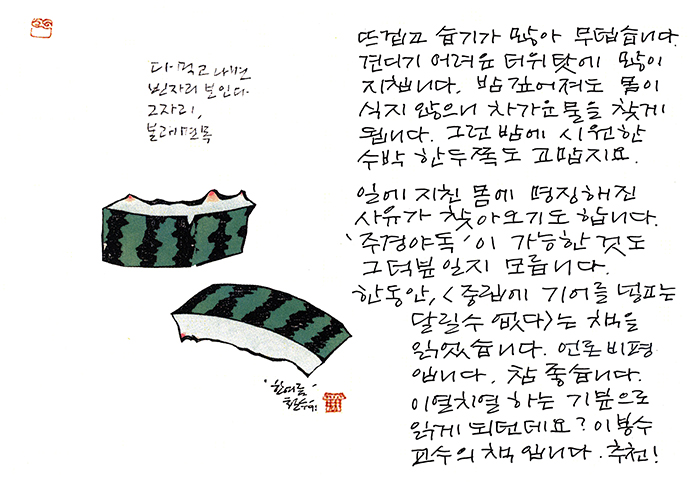 다 먹고 나면
빈자리 보인다.
그자리,
불레면목
뜨겁고 습기가 많아 무덥습니다.
견디기 어려운 더위 탓에 많이
지쳤습니다. 밤 깊어져도 몸이
식지 않으니 차가운 물을 찾게
됩니다. 그런 밤에 시원한
수박 한두쪽도 고맙지요.
일에 지친 몸에 명징해진
사유가 찾아오기도 합니다.
'주경야독'이 가능한 것도
그 더분일지 모릅니다.
한동안, <중립에 기어를 넣고는
달릴 수 없다>는 책을
읽었습니다. 언론비평
입니다. 참 좋습니다.
이열치열 하는 기분으로
읽게 되던데요? 이봉수
교수의 책입니다. 추천!
'한여름'